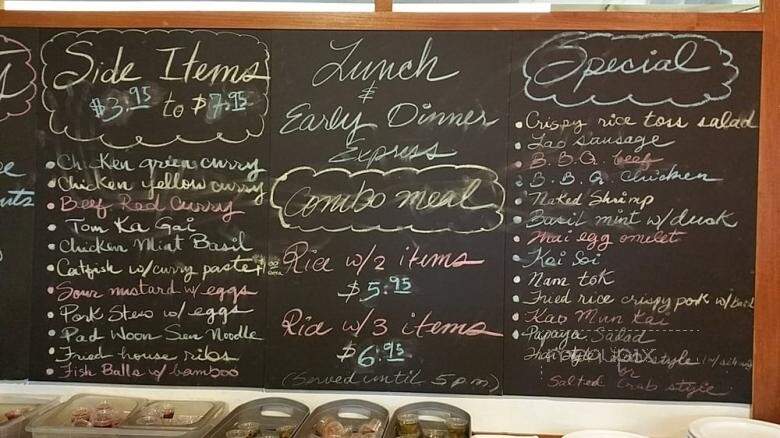 Side Items
$3.95 to $7.95
• Chicken green curry
• Chicken yellow curry
• Beef Red Curry
• Tom Ka Gai
• Chicken Mint Basil
• Catfish w/curry paste
• Sour mustard w/ eggs
• Pork Stew w/ eggs
• Pad Woon Sen Noodle
• Fried house ribs
• Fish Balls w/ bamboo
Lunch
&
Early Dinner
Express
Combo meal
Rice w/2 items
$5.95
Rice w/3 items
$6.95
(Served until 5pm)
Special
• Crispy rice toss salad
• Lao sausage
• B.B.Q. beef
• B.B.Q. chicken
• Naked Shrimp
• Basil mint w/ duck
• Thai egg omelet
• Kai Soi
• Nam tok
• Fried rice crispy pork w/
• Kao Mun Kai
• Papaya Salad
style
or
Salted Crab style